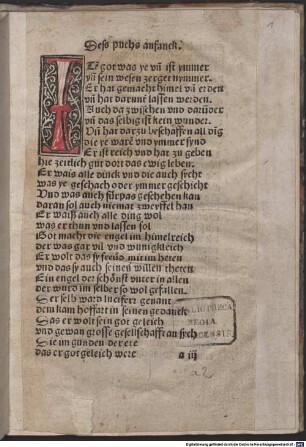 Dess puchs anfanck.
Te got was ye vñ ist ymmer
vñ sein wesen zerget nymmer.
Er hat gemacht himel vñ erden
vñ hat darunt lassen werden.
Auch da zwischen vnd darüber
vñ das selbig ist kein wunder.
Vñ hat dar zu beschaffen all ding
die ye warē vnd ymmer synd
Er ist reich vnd hat zu geben
hie zeitlich gut dort das ewig leben.
Er wais alle dinck vnd die auch sycht
was ye geschach oder ymmer geschicht
Vnd was auch fürpas geschehen kan
daran sol auch niemāt zweyffel han
Er waiß auch alle ding wol
was er thun vnd lassen sol
Got macht die engel im himelreich
der was gar vil vnd wunigkleich
Er wolt das sy freüd mit im heten
vnd das sy auch seinen willen theten
Ein engel der schönst vnter in allen
der wurd im selber so wol gefallen.
Der selb ward lucifer genant
dem kam hoffart in seinen gedanck
Das er wolt sein got geleich
vnd gewan grosse geselschafft an sych
Die im gunden der ere
das er got geleich were a iij
BIBLIOTHECA
REGIA
MONACENSIS
a2
1